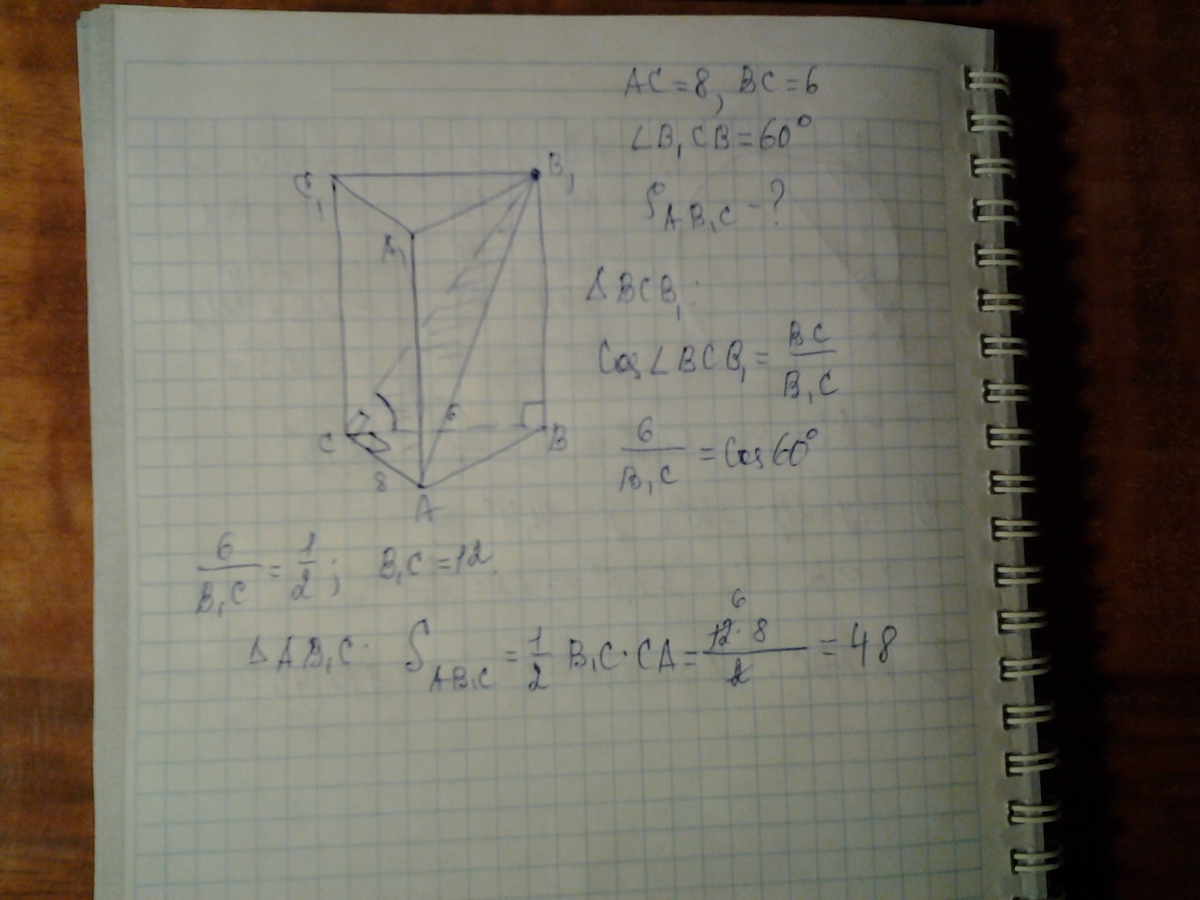 AC = 8, BC = 6
∠B₁CB = 60°
S_AB₁C - ?
C₁
B₁
A₁
C
B
A
6
8
Δ BCB₁:
Cos∠BCB₁ = BC/B₁C
6/B₁C = Cos 60°
6/B₁C = 1/2; B₁C = 12.
Δ AB₁C: S_AB₁C = 1/2 B₁C · CA = 12·8/2 = 48
6